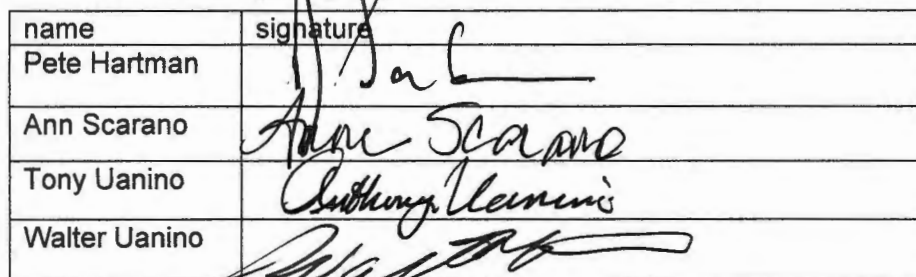 name signature
Pete Hartman
Ann Scarano Anne Scarano
Tony Uanino Anthony Uanino
Walter Uanino